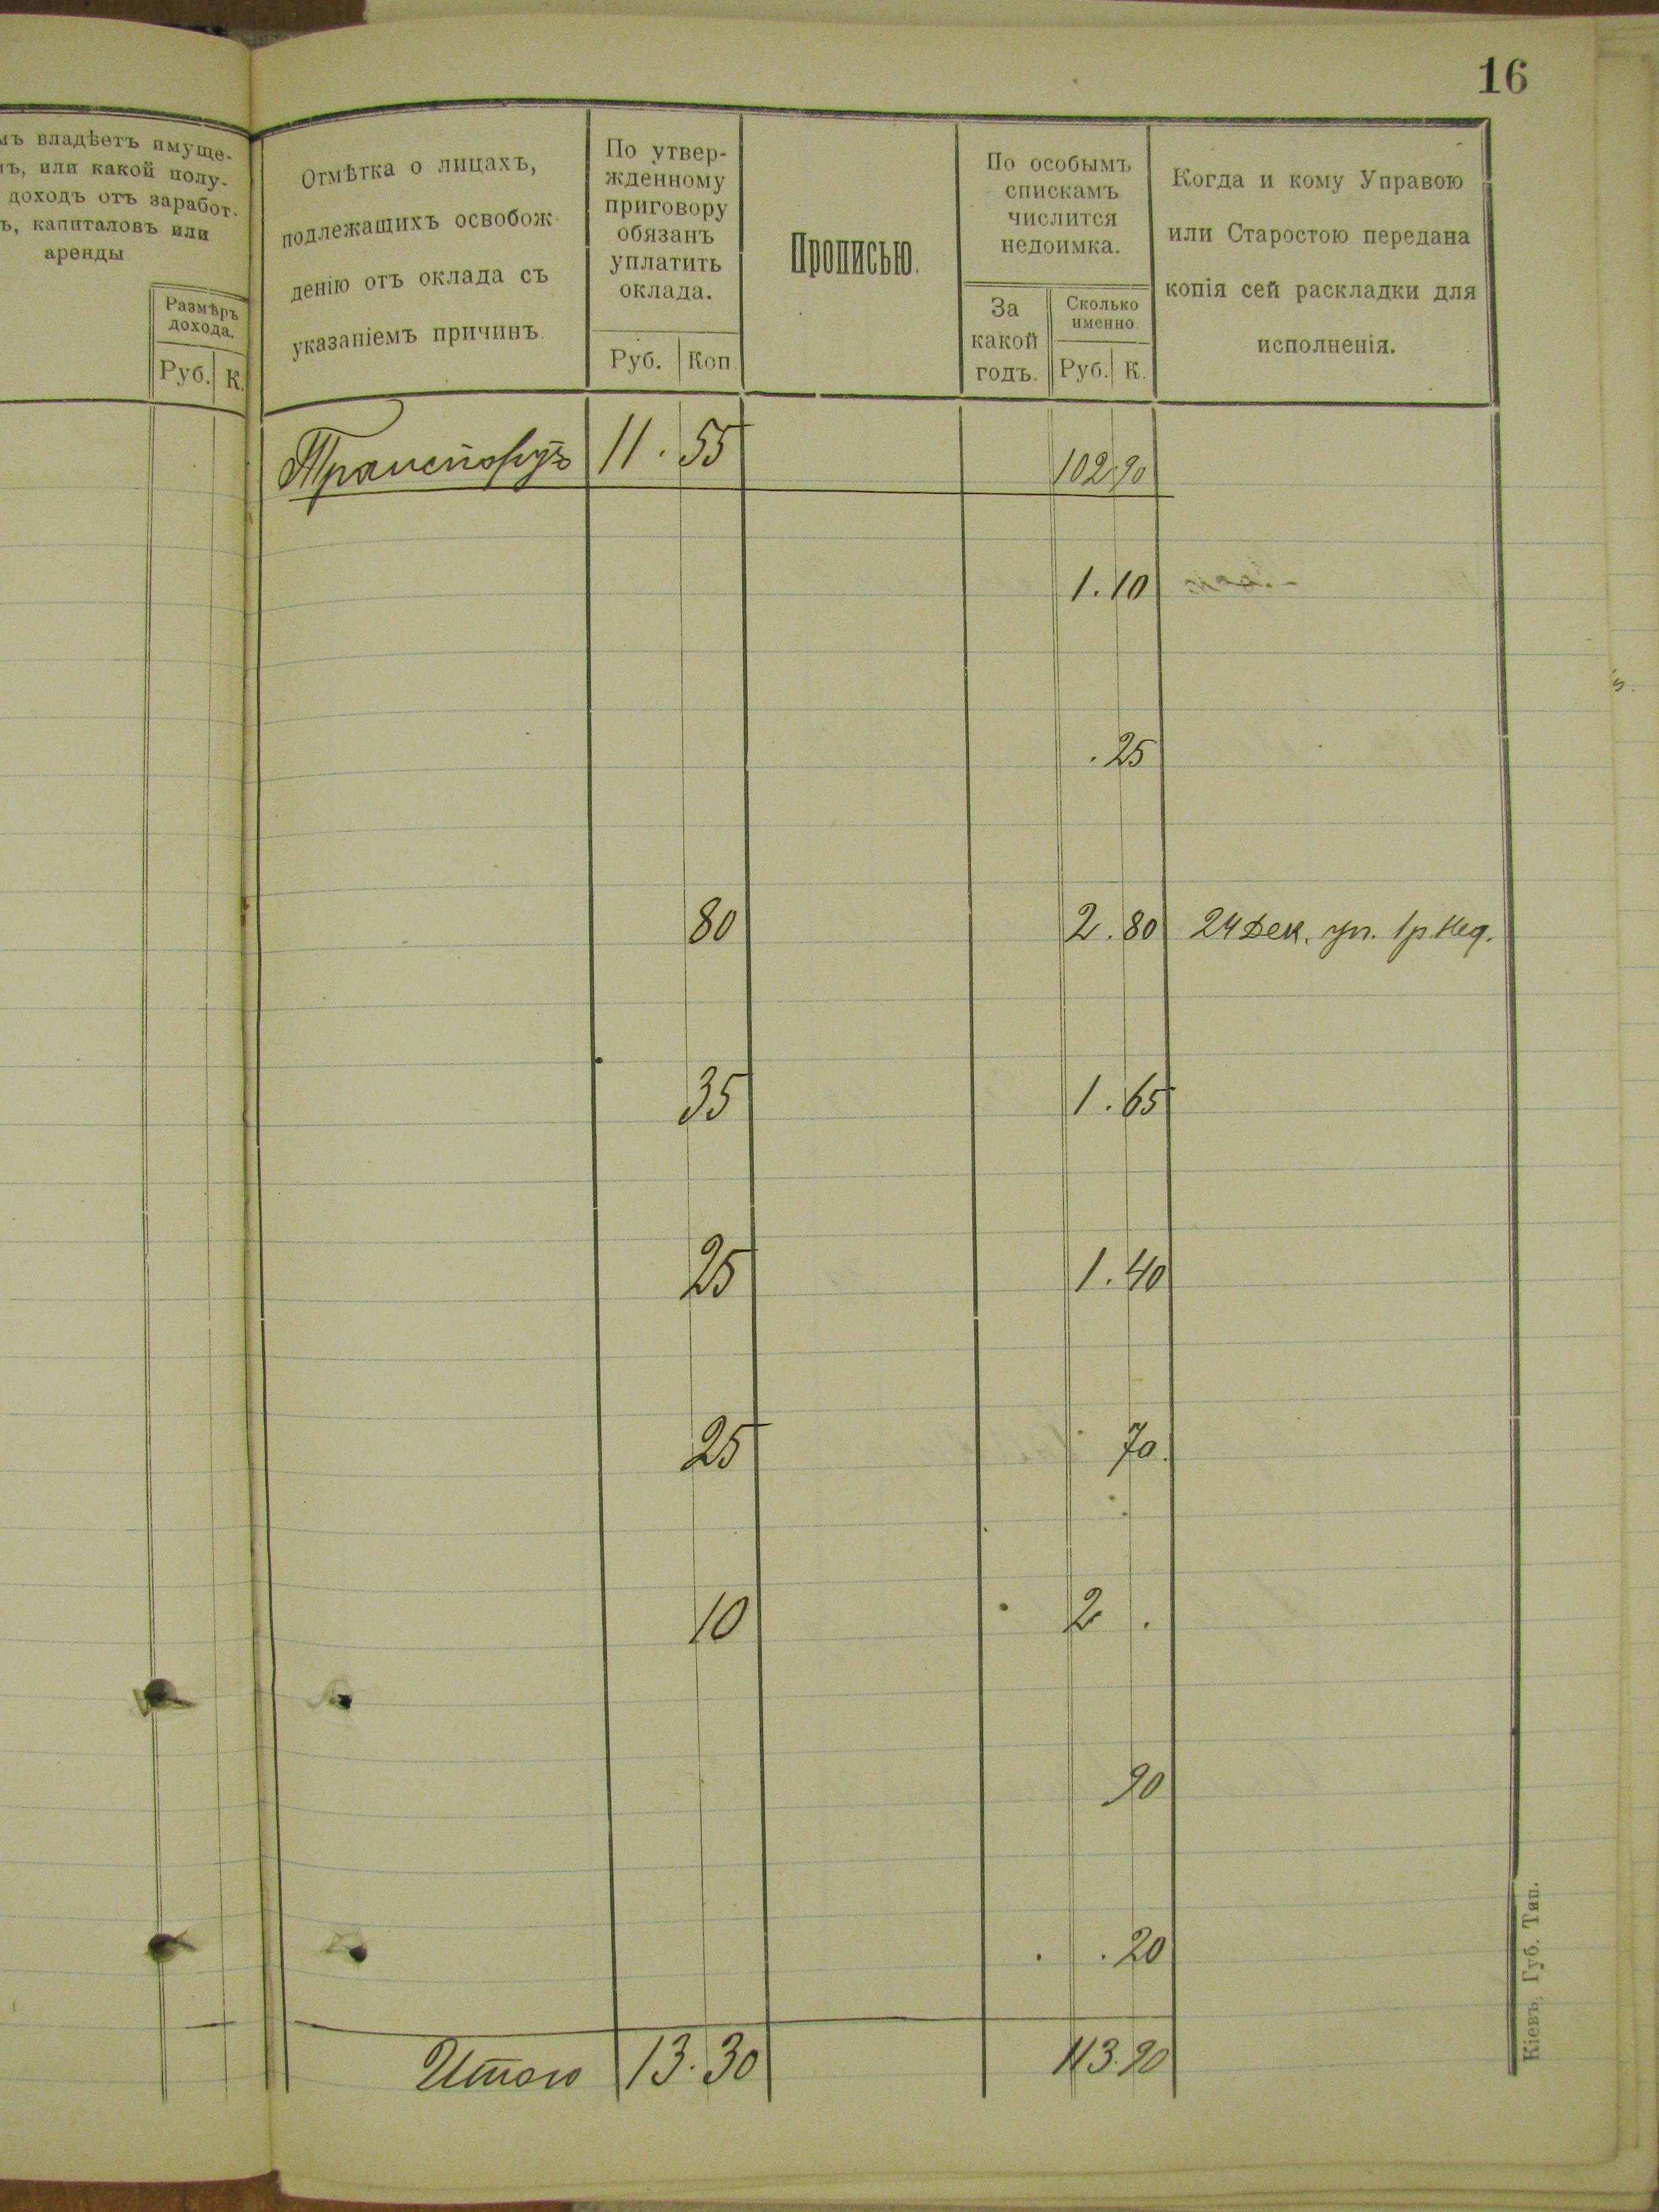 16
владѣетъ имуще-
или какой полу-
доходъ отъ заработ-
капиталовъ или
аренды
Размѣръ
дохода.
Руб. К.
Отмѣтка о лицахъ,
подлежащихъ освобож-
денію отъ оклада съ
указаніемъ причинъ
По утвер-
жденному
приговору
обязанъ
уплатить
оклада.
Руб. Коп
Прописью.
По особымъ
спискамъ
числится
недоимка.
За
какой
годъ.
Сколько
именно
Руб. К.
Когда и кому Управою
или Старостою передана
копія сей раскладки для
исполненія.
Транспортъ 11. 55 102.90
1.10
.25
80 2.80 24 Дек. уп. 1р нед.
35 1.65
25 1.40
25 70.
10 2 .
90
.20
Итого 13.30 113.90
Кіевъ, Губ. Тип.